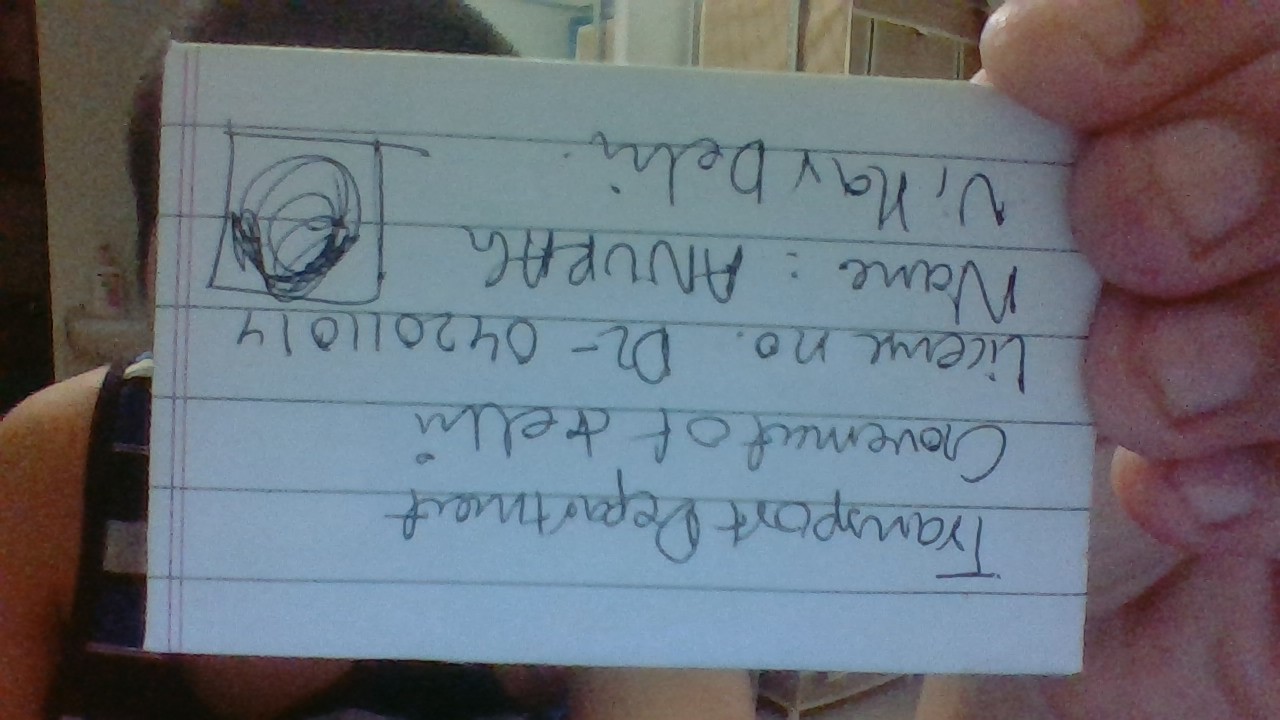 Transport Department
Government of delhi
License no. DL- 042011014
Name : ANURAG
Vihar Delhi